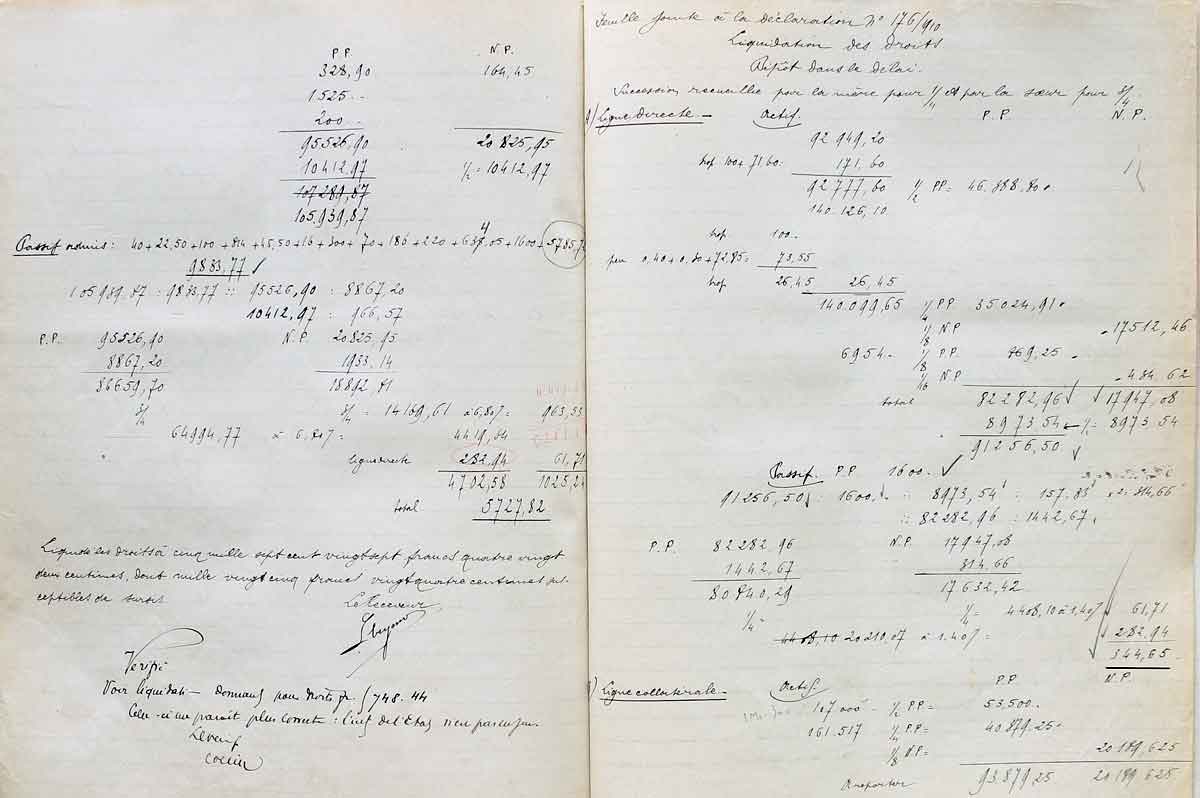 P.P. N.P.
328,90 164,45
1525 --
200 --
95526,90 20825,95
10412,97 1/2 = 10412,97
107289,87
105.939,87
Passif admis : 40 + 22,50 + 100 + 814 + 45,50 + 16 + 300 + 70 + 186 + 220 + 634,05 + 1600 + 5785,72
9833,77
105939,87 : 9833,77 :: 95526,90 : 8867,20
10412,97 : 966,57
P.P. 95526,90 N.P. 20.825,95
8867,20 1933,14
86659,70 18892,81
3/4 3/4 = 14169,61 à 6,80% = 963,53
64994,77 à 6.80% = 4419,64
ligne directe 282,94 61,71
4702,58 1025,24
total 5727,82
Liquidé les droits à cinq mille sept cent vingt sept francs quatre vingt
deux centimes, dont mille vingt cinq francs vingt quatre centimes sus
ceptibles de sursis
Le Receveur
Vérifié
Voir liquidati- donnant pour droits fr. 5748.44
Celle-ci me paraît plus correcte : l'intérêt de l'Etat n'en pas
Le vérif
Feuille jointe à la déclaration N° 176/910
Liquidation des droits
Dépôt dans le délai.
Succession recueillie par la mère pour 1/4 et par la sœur pour 3/4
A) Ligne directe - Actif. P.P. N.P.
92 949,20
trop 100 + 71,60 : 171,60
92 777,60 1/2 PP = 46.388.80
140.126,10
trop 100 --
peu 0,40 + 0,30 + 72,85 = 73,55
trop 26,45 26,45
140.099,65 1/4 P.P. 35024,91
1/8 N.P. 17512,46
6954 - 1/8 P.P. 869,25
1/16 N.P. 434,62
total 82282,96 17947,08
8973,54 1/2 = 8973,54
91256,50
Passif. P.P. 1600 -
91256,50 : 1600 :: 8973,54 : 157,33 x 2 : 314,66
:: 82282,96 : 1442,67
P.P. 82282,96 N.P. 17947,08
1442,67 314,66
80840,29 17.632,42
1/4 = 4408,10 à 1,40% 61,71
1/4 4408,10 20210,07 à 1.40% = 282,94
344,65
B) Ligne collatérale - Actif P.P. N.P.
107000 - 1/2 PP = 53,500 -
161.517 1/4 P.P. = 40.379.25
1/8 N.P. = 20189,625
A reporter 93.879,25 20189,625